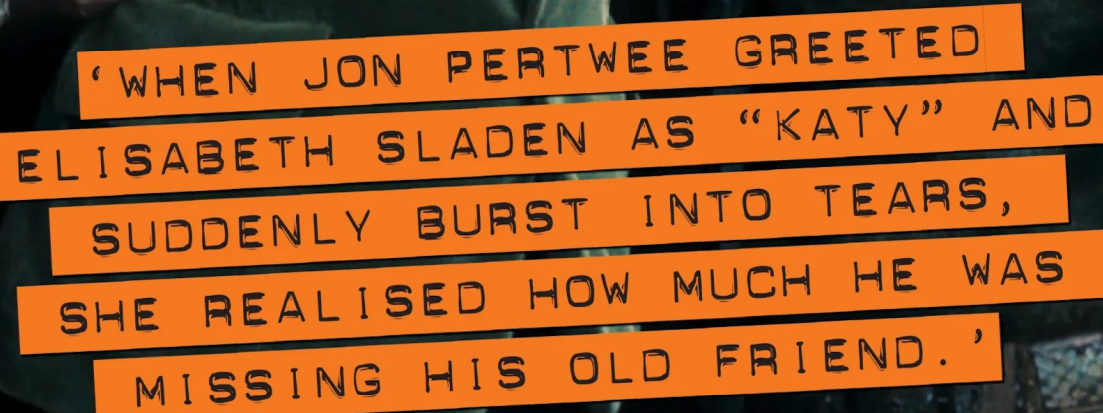 ‘WHEN JON PERTWEE GREETED
ELISABETH SLADEN AS “KATY” AND
SUDDENLY BURST INTO TEARS,
SHE REALISED HOW MUCH HE WAS
MISSING HIS OLD FRIEND.’